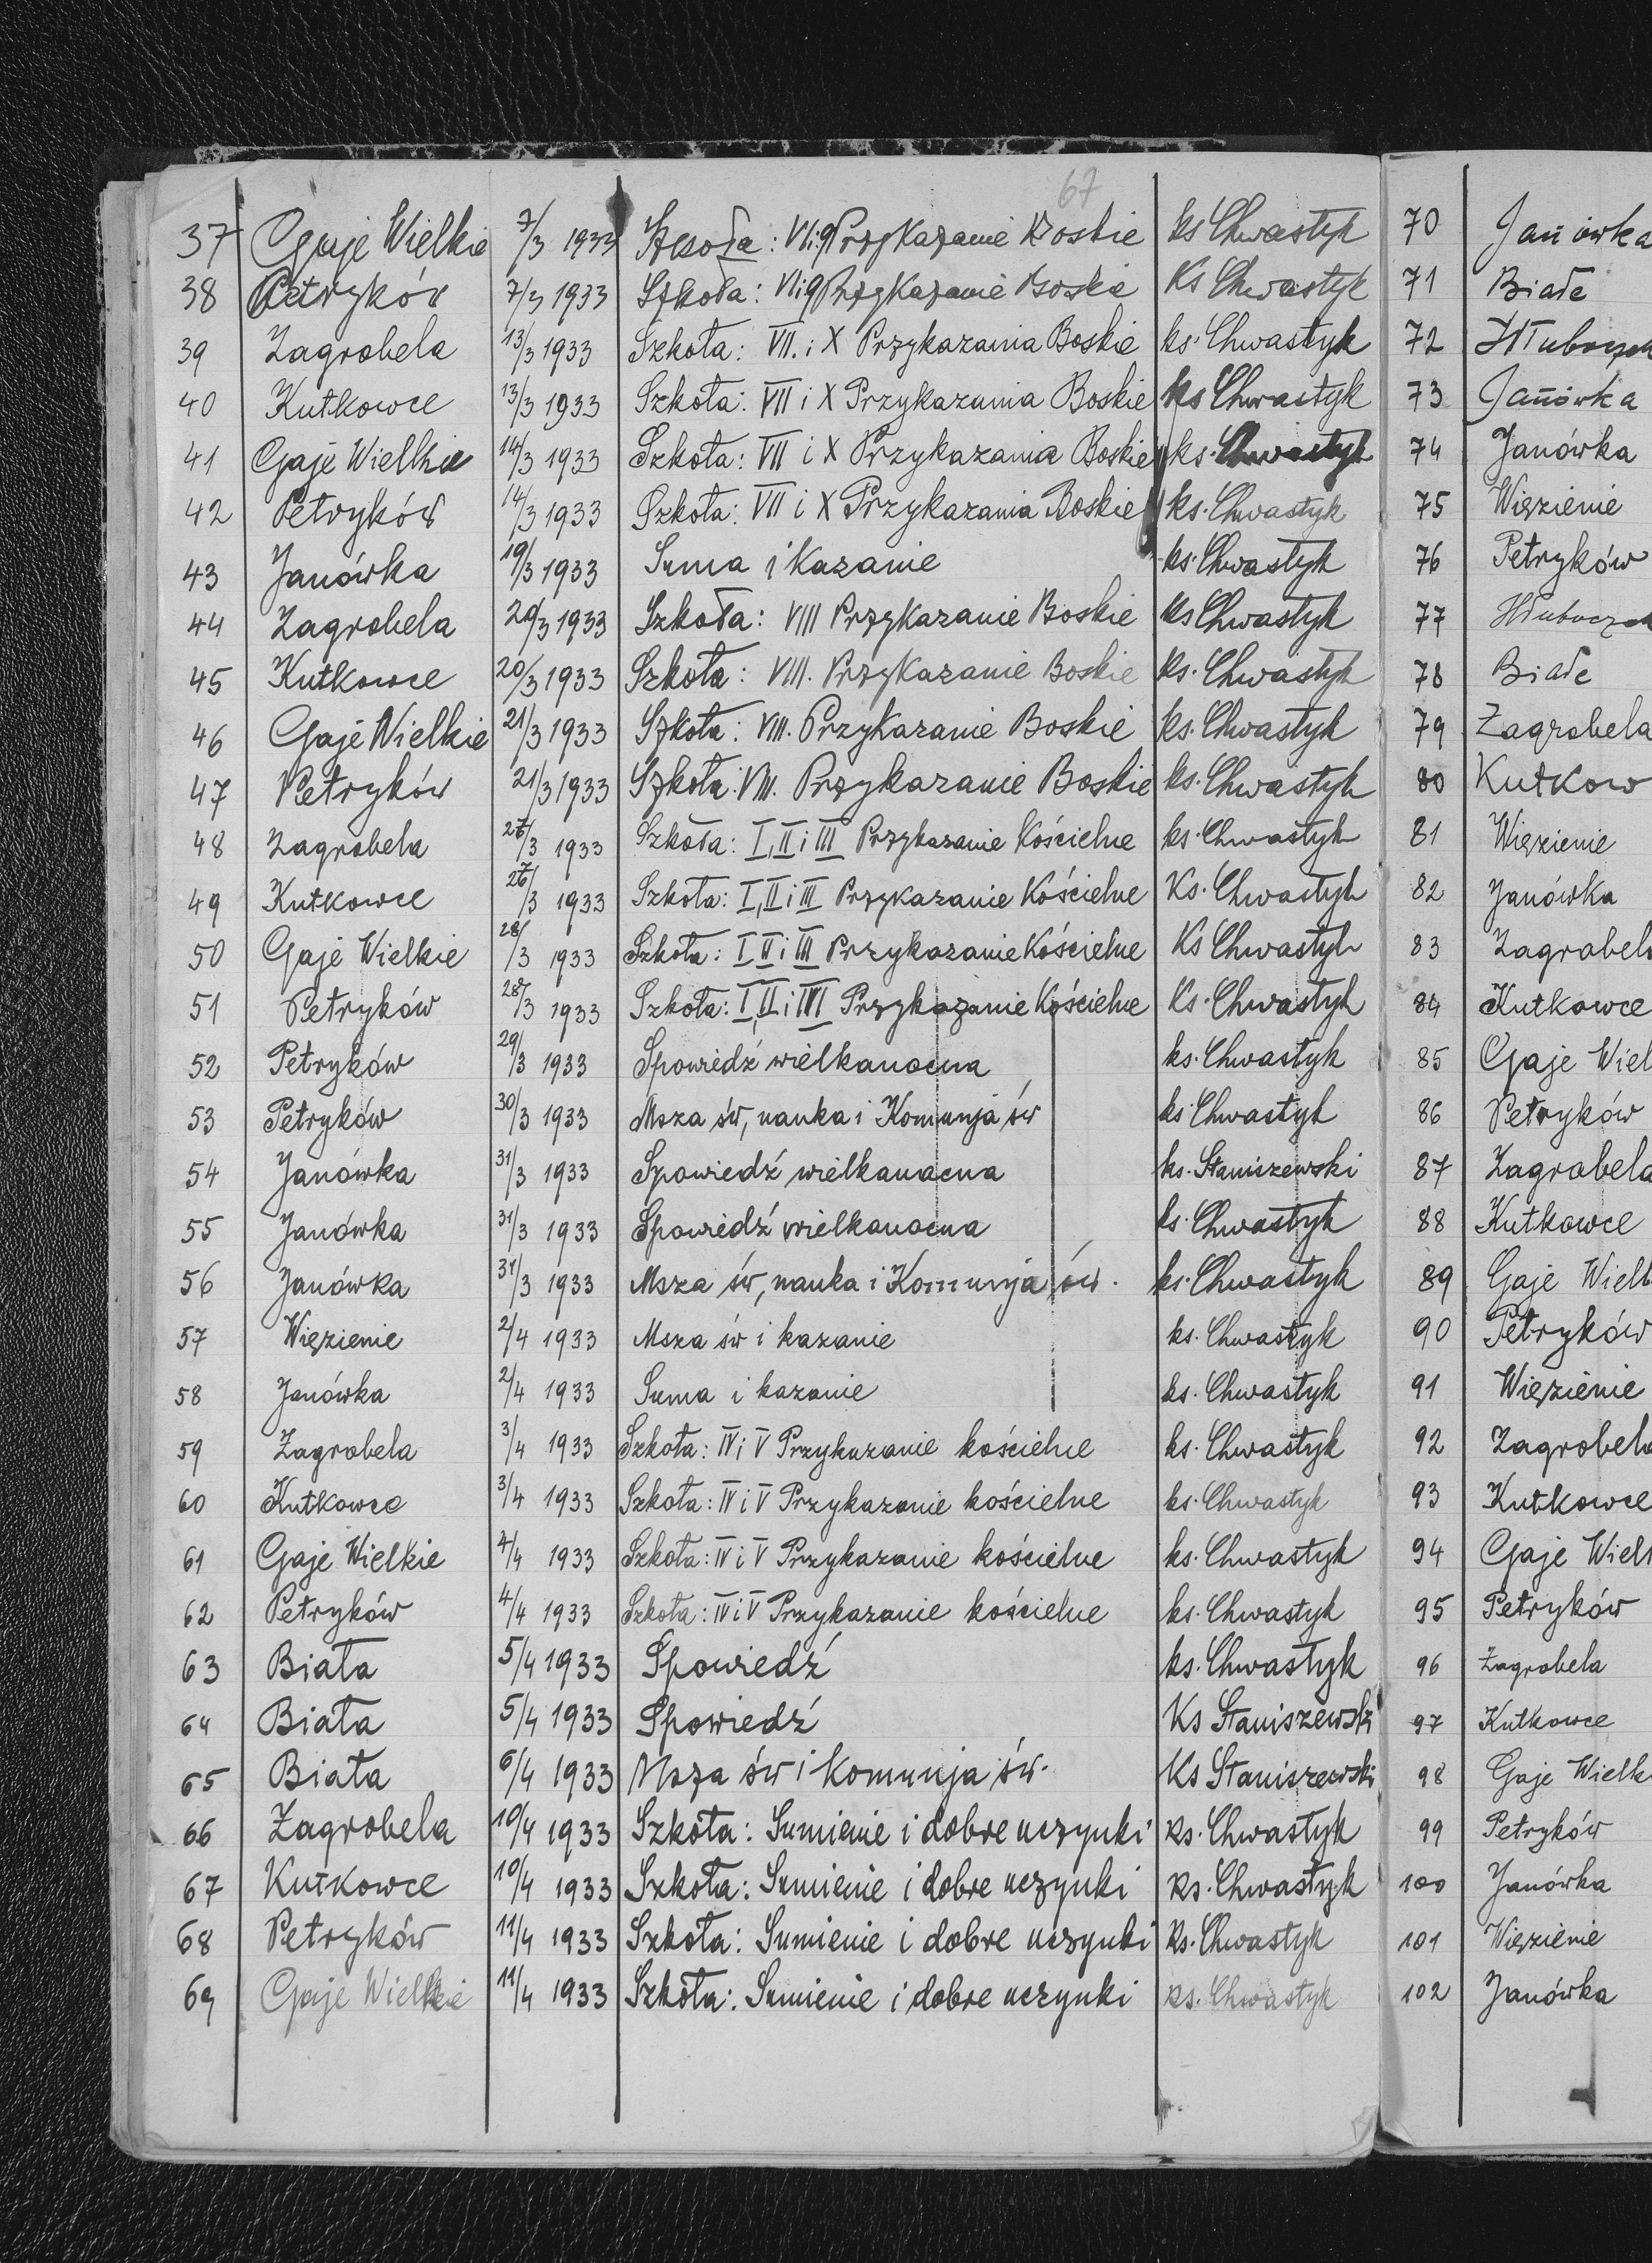 67
37 Gaje Wielkie 7/3 1933 Szkoła: VI i 9 Przykazanie Boskie ks Chwastyk
38 Petryków 7/3 1933 Szkoła: VI i 9 Przykazanie Boskie Ks Chwastyk
39 Zagrobela 13/3 1933 Szkoła: VII. i X Przykazania Boskie ks. Chwastyk
40 Kutkowce 13/3 1933 Szkoła: VII i X Przykazania Boskie ks Chwastyk
41 Gaje Wielkie 14/3 1933 Szkoła: VII i X Przykazania Boskie ks. Chwastyk
42 Petryków 14/3 1933 Szkoła: VII i X Przykazania Boskie ks. Chwastyk
43 Janówka 19/3 1933 Suma i Kazanie ks. Chwastyk
44 Zagrobela 20/3 1933 Szkoła: VIII Przykazanie Boskie ks Chwastyk
45 Kutkowce 20/3 1933 Szkoła: VIII. Przykazanie Boskie ks. Chwastyk
46 Gaje Wielkie 21/3 1933 Szkoła: VIII. Przykazanie Boskie ks. Chwastyk
47 Petryków 21/3 1933 Szkoła: VIII. Przykazanie Boskie ks. Chwastyk
48 Zagrobela /3 1933 Szkoła: I, II i III Przykazanie Kościelne ks. Chwastyk
49 Kutkowce /3 1933 Szkoła: I, II i III Przykazanie Kościelne Ks. Chwastyk
50 Gaje Wielkie 28/3 1933 Szkoła: I II i III Przykazanie Kościelne Ks Chwastyk
51 Petryków 28/3 1933 Szkoła: I, II i III Przykazanie Kościelne Ks. Chwastyk
52 Petryków 29/3 1933 Spowiedź wielkanocna ks. Chwastyk
53 Petryków 30/3 1933 Msza św, nauka i Komunja św ks. Chwastyk
54 Janówka 31/3 1933 Spowiedź wielkanocna ks. Staniszewski
55 Janówka 31/3 1933 Spowiedź wielkanocna ks. Chwastyk
56 Janówka 31/3 1933 Msza św, nauka i Komunja św. ks. Chwastyk
57 Więzienie 2/4 1933 Msza św i kazanie ks. Chwastyk
58 Janówka 2/4 1933 Suma i kazanie ks. Chwastyk
59 Zagrobela 3/4 1933 Szkoła: IV i V Przykazanie kościelne ks. Chwastyk
60 Kutkowce 3/4 1933 Szkoła: IV i V Przykazanie kościelne ks. Chwastyk
61 Gaje Wielkie 4/4 1933 Szkoła: IV i V Przykazanie kościelne ks. Chwastyk
62 Petryków 4/4 1933 Szkoła: IV i V Przykazanie kościelne ks. Chwastyk
63 Biała 5/4 1933 Spowiedź ks. Chwastyk
64 Biała 5/4 1933 Spowiedź Ks Staniszewski
65 Biała 6/4 1933 Msza św i Komunja św. Ks Staniszewski
66 Zagrobela 10/4 1933 Szkoła: Sumienie i dobre uczynki ks. Chwastyk
67 Kutkowce 10/4 1933 Szkoła: Sumienie i dobre uczynki ks. Chwastyk
68 Petryków 11/4 1933 Szkoła: Sumienie i dobre uczynki ks. Chwastyk
69 Gaje Wielkie 11/4 1933 Szkoła: Sumienie i dobre uczynki ks. Chwastyk
70 Janówka
71 Białe
72
73 Janówka
74 Janówka
75 Więzienie
76 Petryków
77
78 Białe
79 Zagrobela
80 Kutkow
81 Więzienie
82 Janówka
83 Zagrobela
84 Kutkowce
85 Gaje Wiel
86 Petryków
87 Zagrobela
88 Kutkowce
89 Gaje Wielk
90 Petryków
91 Więzienie
92 Zagrobela
93 Kutkowce
94 Gaje Wielk
95 Petryków
96 Zagrobela
97 Kutkowce
98 Gaje Wielk
99 Petryków
100 Janówka
101 Więzienie
102 Janówka